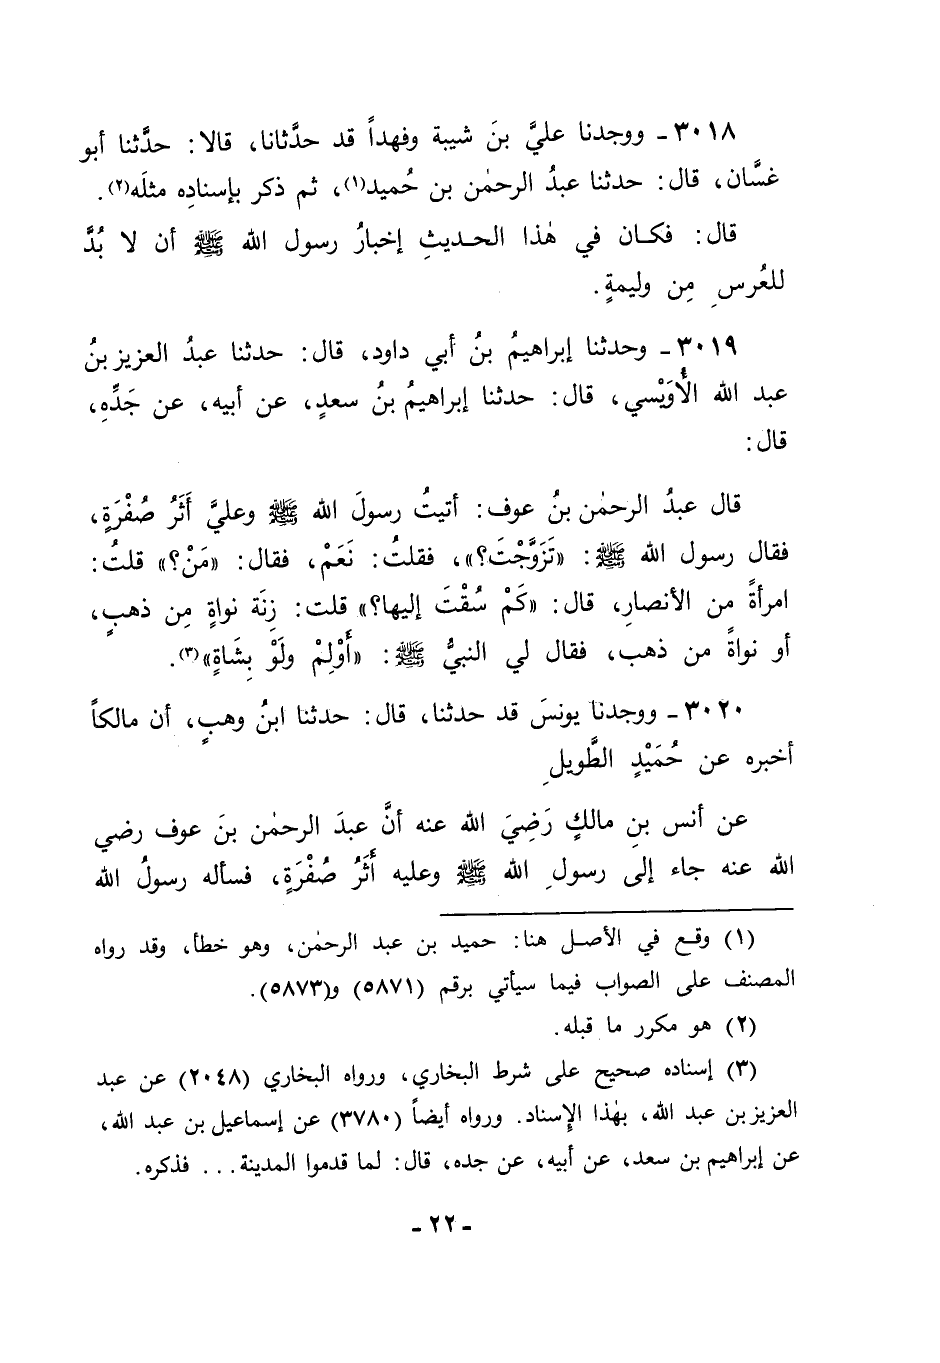 ٣٠١٨ ـ ووجدنا عليَّ بنَ شيبة وفهداً قد حدَّثانا، قالا: حدَّثنا أبو
غسَّان، قال: حدثنا عبدُ الرحمٰن بن حُميد(١)، ثم ذكر بإسنادِه مثلَه(٢).
قال: فكـان في هٰذا الحـديثِ إخبارُ رسول الله ﷺ أن لا بُدَّ
للعُرسِ مِن وليمةٍ.
٣٠١٩ ـ وحدثنا إبراهيمُ بنُ أبي داود، قال: حدثنا عبدُ العزيز بنُ
عبد الله الأُوَيْسي، قال: حدثنا إبراهيمُ بنُ سعدٍ، عن أبيه، عن جَدِّهِ،
قال:
قال عبدُ الرحمٰن بنُ عوف: أتيتُ رسولَ الله ﷺ وعليَّ أَثَرُ صُفْرَةٍ،
فقال رسول الله ﷺ: «تَزَوَّجْتَ؟»، فقلتُ: نَعَمْ، فقال: «مَنْ؟» قلتُ:
امرأةً من الأنصارِ، قال: «كَمْ سُقْتَ إليها؟» قلت: زِنَة نواةٍ مِن ذهبٍ،
أو نواةً من ذهب، فقال لي النبيُّ ﷺ: «أَوْلِمْ ولَوْ بِشَاةٍ»(٣).
٣٠٢٠ ـ ووجدنا يونسَ قد حدثنا، قال: حدثنا ابنُ وهبٍ، أن مالكاً
أخبره عن حُمَيْدٍ الطَّويلِ
عن أنس بنِ مالكٍ رَضِيَ الله عنه أنَّ عبدَ الرحمٰن بنَ عوف رضي
الله عنه جاء إلى رسولِ الله ﷺ وعليه أَثَرُ صُفْرَةٍ، فسأله رسولُ الله
(١) وقـع في الأصـل هنا: حميد بن عبد الرحمٰن، وهو خطأ، وقد رواه
المصنف على الصواب فيما سيأتي برقم (٥٨٧١) و(٥٨٧٣).
(٢) هو مكرر ما قبله.
(٣) إسناده صحيح على شرط البخاري، ورواه البخاري (٢٠٤٨) عن عبد
العزيز بن عبد الله، بهٰذا الإِسناد. ورواه أيضاً (٣٧٨٠) عن إسماعيل بن عبد الله،
عن إبراهيم بن سعد، عن أبيه، عن جده، قال: لما قدموا المدينة... فذكره.
ـ ٢٢ ـ